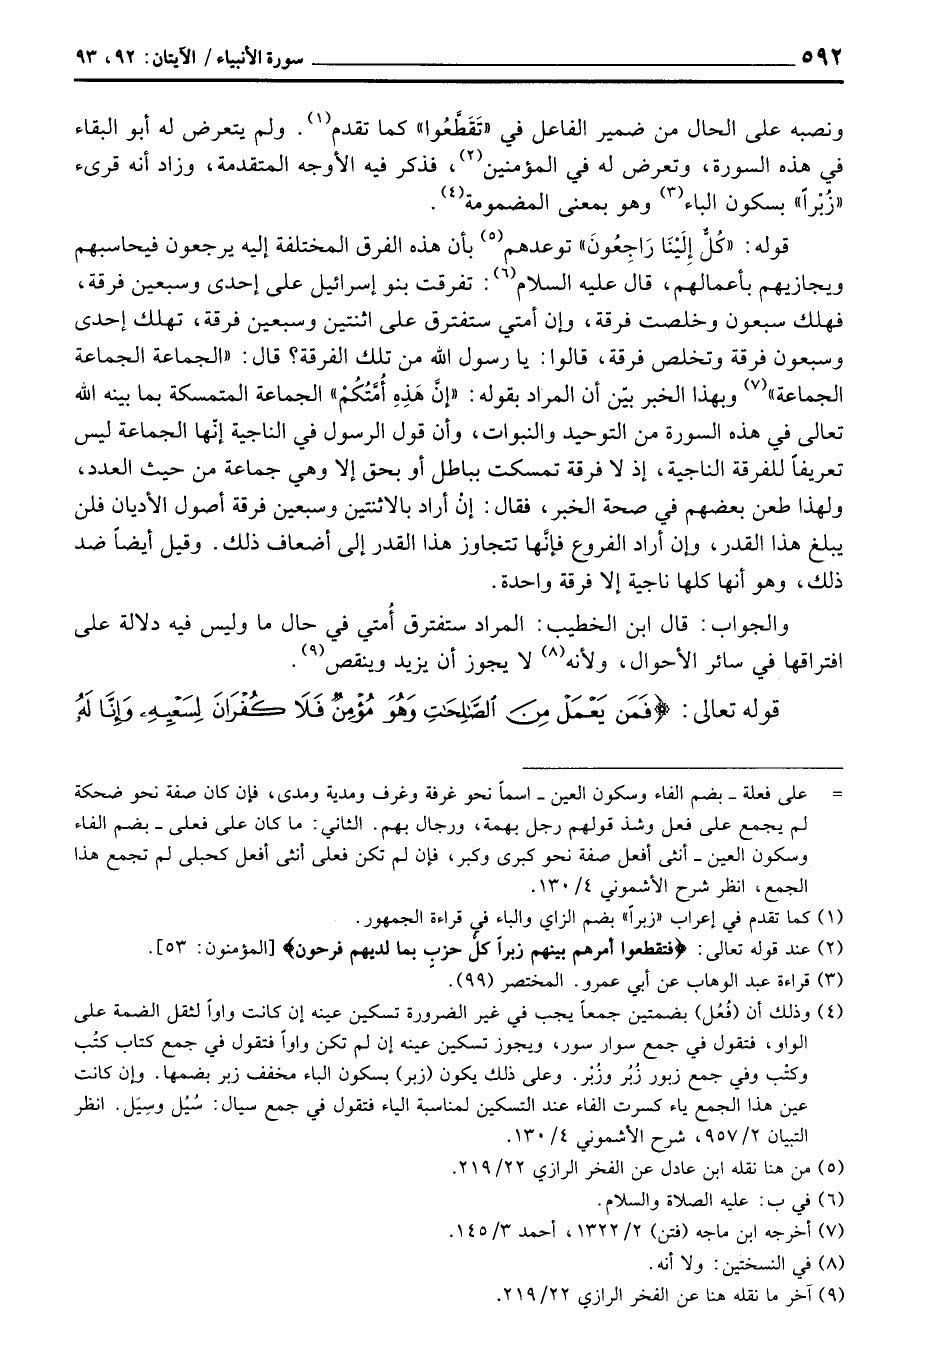 ٥٩٢ سورة الأنبياء / الآيتان: ٩٢، ٩٣
ونصبه على الحال من ضمير الفاعل في «تَقَطَّعُوا» كما تقدم(١). ولم يتعرض له أبو البقاء
في هذه السورة، وتعرض له في المؤمنين(٢)، فذكر فيه الأوجه المتقدمة، وزاد أنه قرىء
«زُبْراً» بسكون الباء(٣) وهو بمعنى المضمومة(٤).
قوله: «كُلٌّ إِلَيْنَا رَاجِعُونَ» توعدهم(٥) بأن هذه الفرق المختلفة إليه يرجعون فيحاسبهم
ويجازيهم بأعمالهم، قال عليه السلام(٦): تفرقت بنو إسرائيل على إحدى وسبعين فرقة،
فهلك سبعون وخلصت فرقة، وإن أمتي ستفترق على اثنتين وسبعين فرقة، تهلك إحدى
وسبعون فرقة وتخلص فرقة، قالوا: يا رسول الله من تلك الفرقة؟ قال: «الجماعة الجماعة
الجماعة»(٧) وبهذا الخبر بيّن أن المراد بقوله: «إِنَّ هَذِهِ أُمَّتُكُمْ» الجماعة المتمسكة بما بينه الله
تعالى في هذه السورة من التوحيد والنبوات، وأن قول الرسول في الناجية إنّها الجماعة ليس
تعريفاً للفرقة الناجية، إذ لا فرقة تمسكت بباطل أو بحق إلا وهي جماعة من حيث العدد،
ولهذا طعن بعضهم في صحة الخبر، فقال: إنْ أراد بالاثنتين وسبعين فرقة أصول الأديان فلن
يبلغ هذا القدر، وإن أراد الفروع فإنَّها تتجاوز هذا القدر إلى أضعاف ذلك. وقيل أيضاً ضد
ذلك، وهو أنها كلها ناجية إلا فرقة واحدة.
والجواب: قال ابن الخطيب: المراد ستفترق أُمتي في حال ما وليس فيه دلالة على
افتراقها في سائر الأحوال، ولأنه(٨) لا يجوز أن يزيد وينقص(٩).
قوله تعالى: ﴿فَمَن يَعْمَلْ مِنَ ٱلصَّٰلِحَٰتِ وَهُوَ مُؤْمِنٌ فَلَا كُفْرَانَ لِسَعْيِهِۦ وَإِنَّا لَهُۥ
= على فعلة ـ بضم الفاء وسكون العين ـ اسماً نحو غرفة وغرف ومدية ومدى، فإن كان صفة نحو ضحكة
لم يجمع على فعل وشذ قولهم رجل بهمة، ورجال بهم. الثاني: ما كان على فعلى ـ بضم الفاء
وسكون العين ـ أنثى أفعل صفة نحو كبرى وكبر، فإن لم تكن فعلى أنثى أفعل كحبلى لم تجمع هذا
الجمع، انظر شرح الأشموني ٤/ ١٣٠.
(١) كما تقدم في إعراب «زبراً» بضم الزاي والباء في قراءة الجمهور.
(٢) عند قوله تعالى: ﴿فتقطعوا أمرهم بينهم زبراً كلُّ حزبٍ بما لديهم فرحون﴾ [المؤمنون: ٥٣].
(٣) قراءة عبد الوهاب عن أبي عمرو. المختصر (٩٩).
(٤) وذلك أن (فُعُل) بضمتين جمعاً يجب في غير الضرورة تسكين عينه إن كانت واواً لثقل الضمة على
الواو، فتقول في جمع سوار سور، ويجوز تسكين عينه إن لم تكن واواً فتقول في جمع كتاب كتُب
وكتْب وفي جمع زبور زُبُر وزُبْر. وعلى ذلك يكون (زبر) بسكون الباء مخفف زبر بضمها. وإن كانت
عين هذا الجمع ياء كسرت الفاء عند التسكين لمناسبة الياء فتقول في جمع سيال: سُيُل وسِيَل. انظر
التبيان ٢/ ٩٥٧، شرح الأشموني ٤/ ١٣٠.
(٥) من هنا نقله ابن عادل عن الفخر الرازي ٢٢/ ٢١٩.
(٦) في ب: عليه الصلاة والسلام.
(٧) أخرجه ابن ماجه (فتن) ٢/ ١٣٢٢، أحمد ٣/ ١٤٥.
(٨) في النسختين: ولا أنه.
(٩) آخر ما نقله هنا عن الفخر الرازي ٢٢/ ٢١٩.